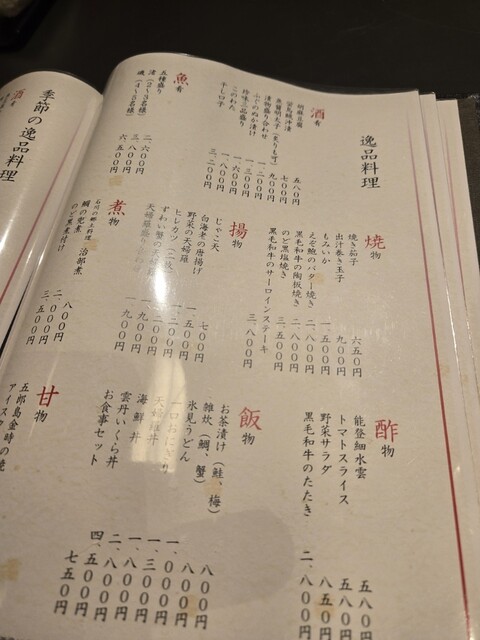 逸品料理
酒肴
胡麻豆腐 五八〇円
蛍烏賊沖漬 七〇〇円
無着色明太子(炙りも可) 九〇〇円
漬物盛り合わせ 一、二〇〇円
ふぐのぬか漬け 一、三〇〇円
珍味三品盛り 一、六〇〇円
このわた 一、八〇〇円
干し口子 三、二〇〇円
魚肴
五種盛り 二、六〇〇円
渚(2~3名様) 三、八〇〇円
磯(4~5名様) 六、五〇〇円
焼物
焼き茄子 六五〇円
出汁巻き玉子 九〇〇円
もみいか 一、五〇〇円
えぞ鮑のバター焼き 二、八〇〇円
黒毛和牛の陶板焼き 二、八〇〇円
のど黒塩焼き 三、五〇〇円
黒毛和牛のサーロインステーキ 三、八〇〇円
揚物
じゃこ天 七〇〇円
白海老の唐揚げ 一、五〇〇円
野菜の天婦羅 一、二〇〇円
ヒレカツ
ずわい蟹の天婦羅
天婦羅盛り合わせ 一、九〇〇円
煮物
石川の郷土料理 治部煮 八〇〇円
鯛の兜煮 二、〇〇〇円
のど黒煮付け 三、五〇〇円
酢物
能登細水雲 五八〇円
トマトスライス 五八〇円
野菜サラダ 八五〇円
黒毛和牛のたたき 二、八〇〇円
飯物
お茶漬け(鮭、梅) 八〇〇円
雑炊(鯛、蟹)
氷見うどん
一口おにぎり
天婦羅丼
海鮮丼
雲丹いくら丼 四、五〇〇円
お食事セット 七五〇円
甘物
五郎島金時の
アイス
季節の逸品料理
酒肴